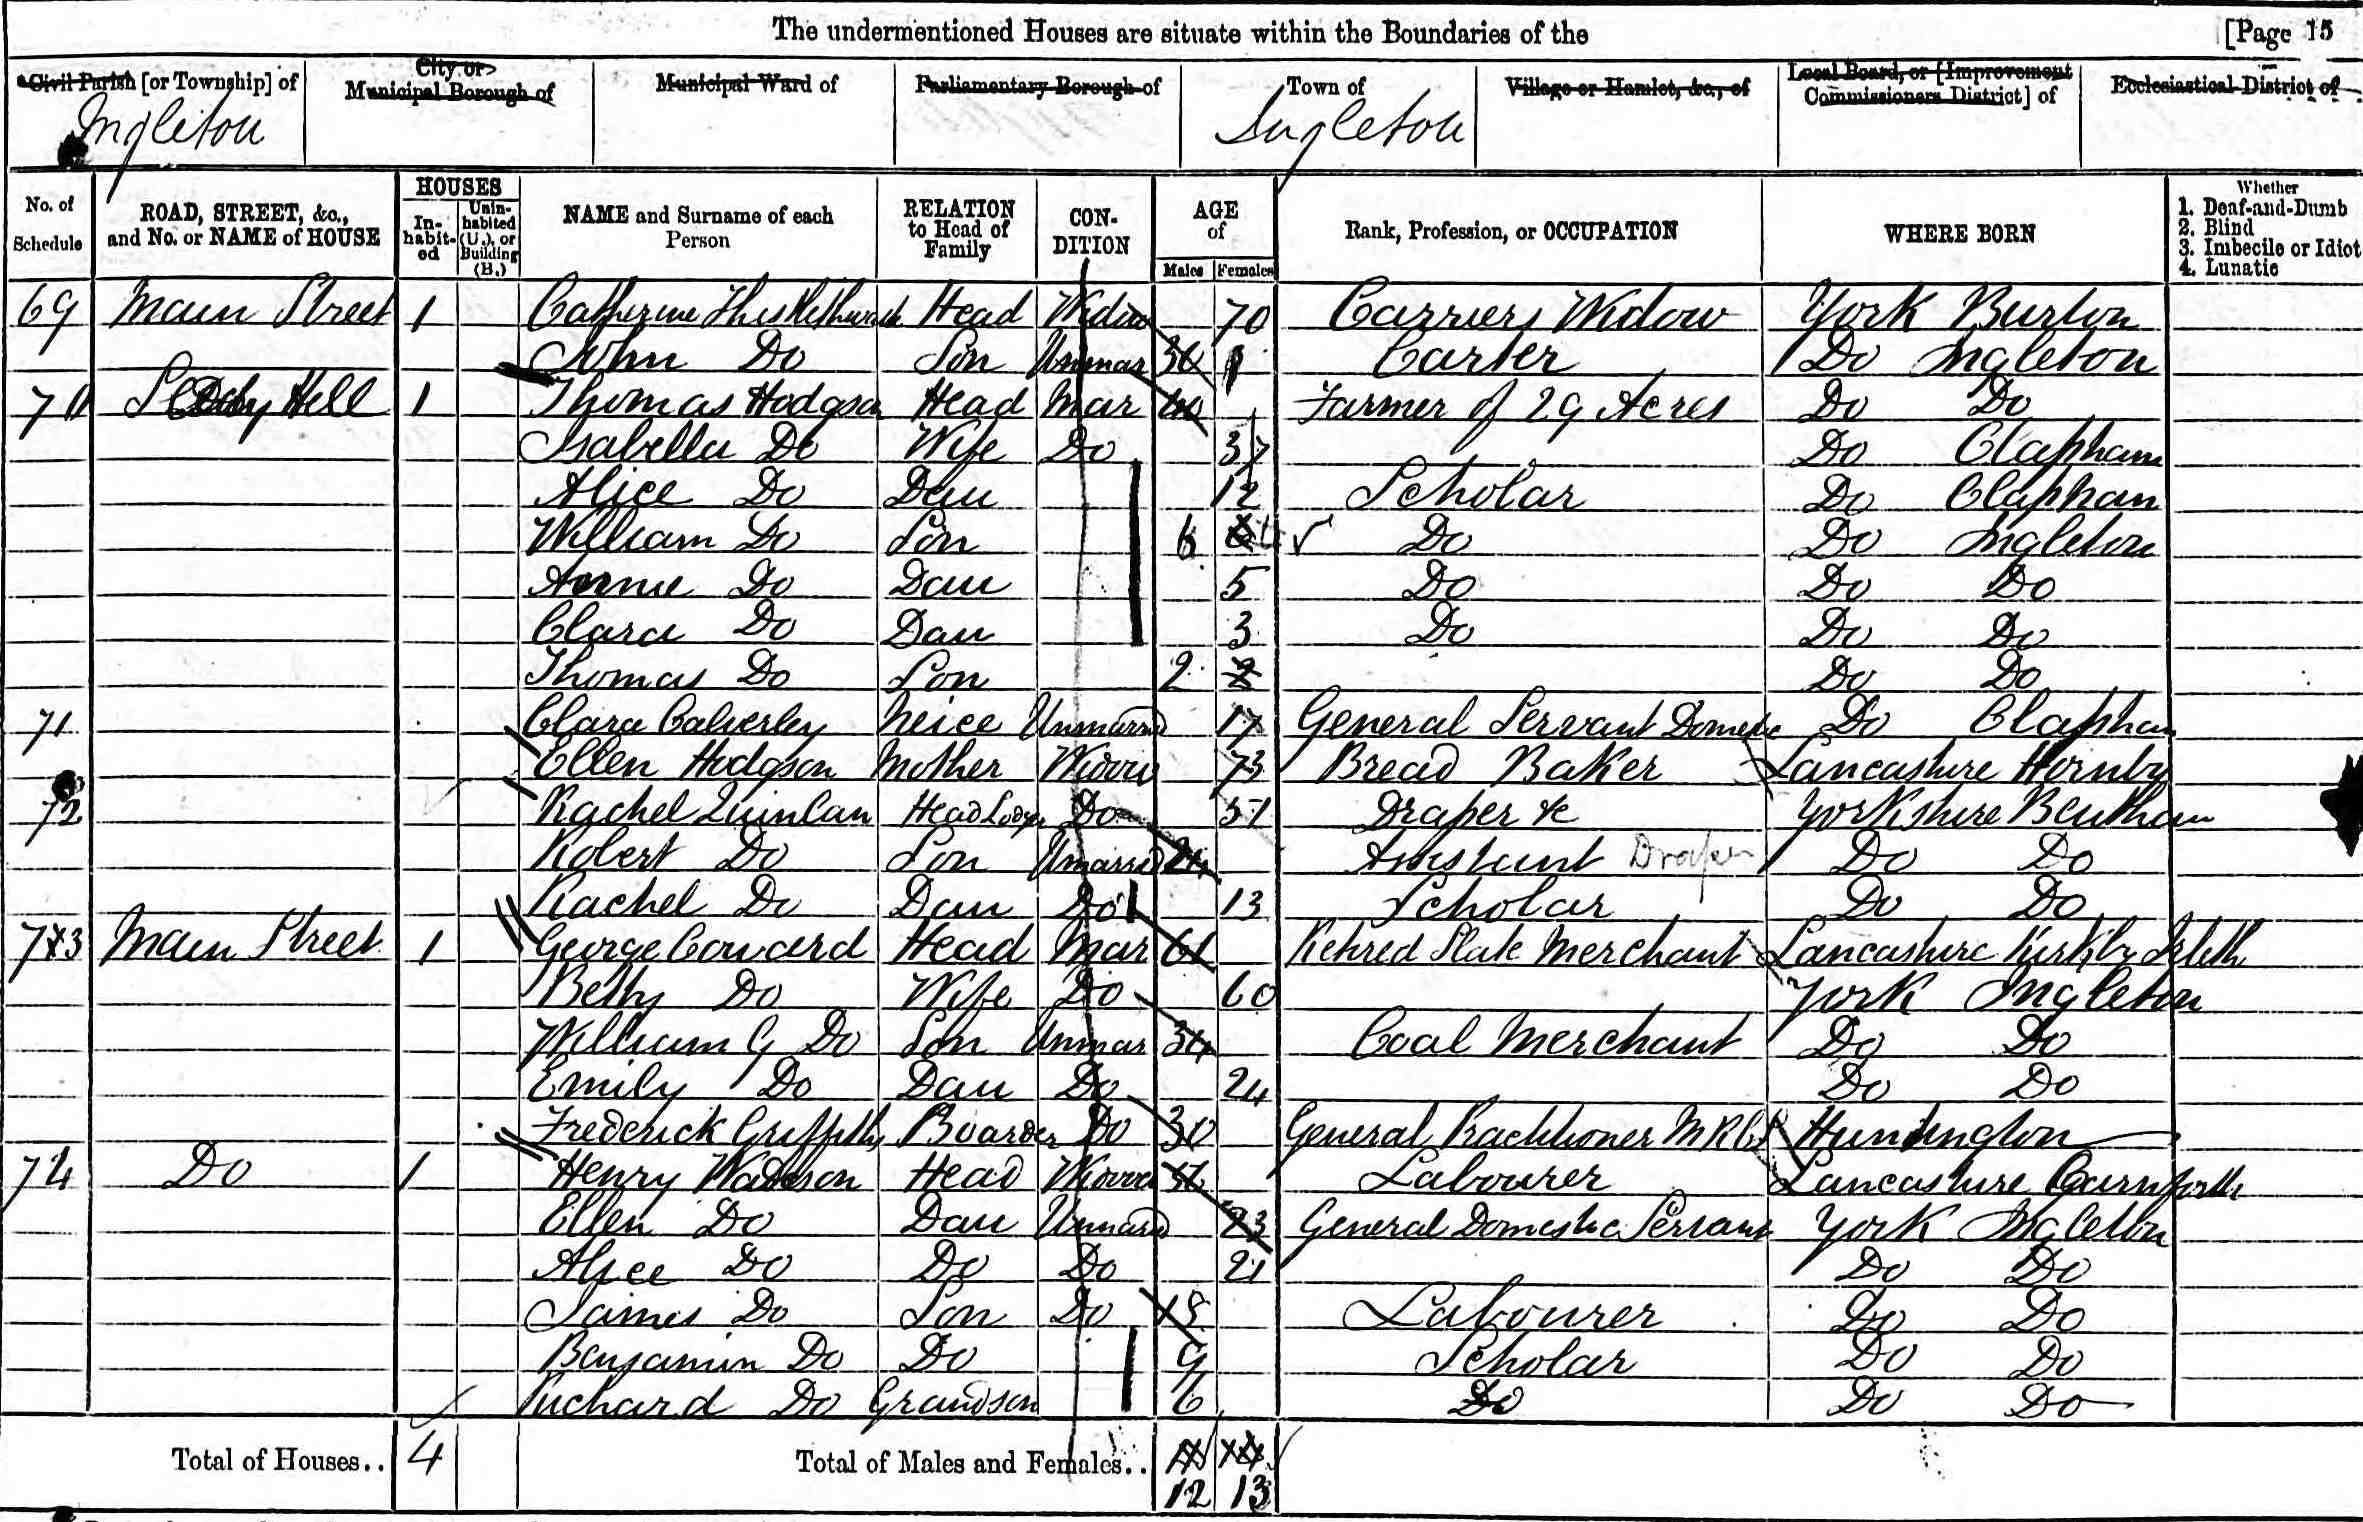 The undermentioned Houses are situate within the Boundaries of the [Page 15
Civil Parish [or Township] of City or Municipal Borough of Municipal Ward of Parliamentary Borough of Town of Village or Hamlet, &c., of Local Board, or [Improvement Commissioners District] of Ecclesiastical District of
Ingleton Ingleton
No. of Schedule ROAD, STREET, &c., and No. or NAME of HOUSE HOUSES In-habit-ed Unin-habited (U.), or Building (B.) NAME and Surname of each Person RELATION to Head of Family CON-DITION AGE of Males Females Rank, Profession, or OCCUPATION WHERE BORN Whether 1. Deaf-and-Dumb 2. Blind 3. Imbecile or Idiot 4. Lunatic
69 Main Street 1 Catherine Head Widow 70 Carriers Widow York Burton
John Do Son Unmar Carter Do Ingleton
70 Hill 1 Thomas Hodgson Head Mar 40 Farmer of 29 Acres Do Do
Isabella Do Wife Do 37 Do Clapham
Alice Do Dau 12 Scholar Do Clapham
William Do Son 6 Do Do Ingleton
Annie Do Dau 5 Do Do Do
Clara Do Dau 3 Do Do Do
Thomas Do Son 2 Do Do
71 Clara Calverley Neice Unmarrd 17 General Servant Domestic Do Clapham
Ellen Hodgson Mother Widow 73 Bread Baker Lancashire Hornby
72 Rachel Quinlan Head Lodger Do 51 Draper &c Yorkshire Bentham
Robert Do Son Unmarrd 24 Assistant Draper Do Do
Rachel Do Dau Do 13 Scholar Do Do
73 Main Street 1 George Coward Head Mar 61 Retired Slate Merchant Lancashire Kirkby Ireleth
Betty Do Wife Do 60 York Ingleton
William G Do Son Unmar 34 Coal Merchant Do Do
Emily Do Dau Do 24 Do Do
Frederick Griffiths Boarder Do 30 General Practitioner MRCS Huntington
74 Do 1 Henry Watson Head Widower Labourer Lancashire Carnforth
Ellen Do Dau Unmarrd 23 General Domestic Servant York Ingleton
Alice Do Do Do 21 Do Do
James Do Son Do 18 Labourer Do Do
Benjamin Do Do 9 Scholar Do Do
Richard Do Grandson 6 Do Do Do
Total of Houses.. 4 Total of Males and Females..
12 13